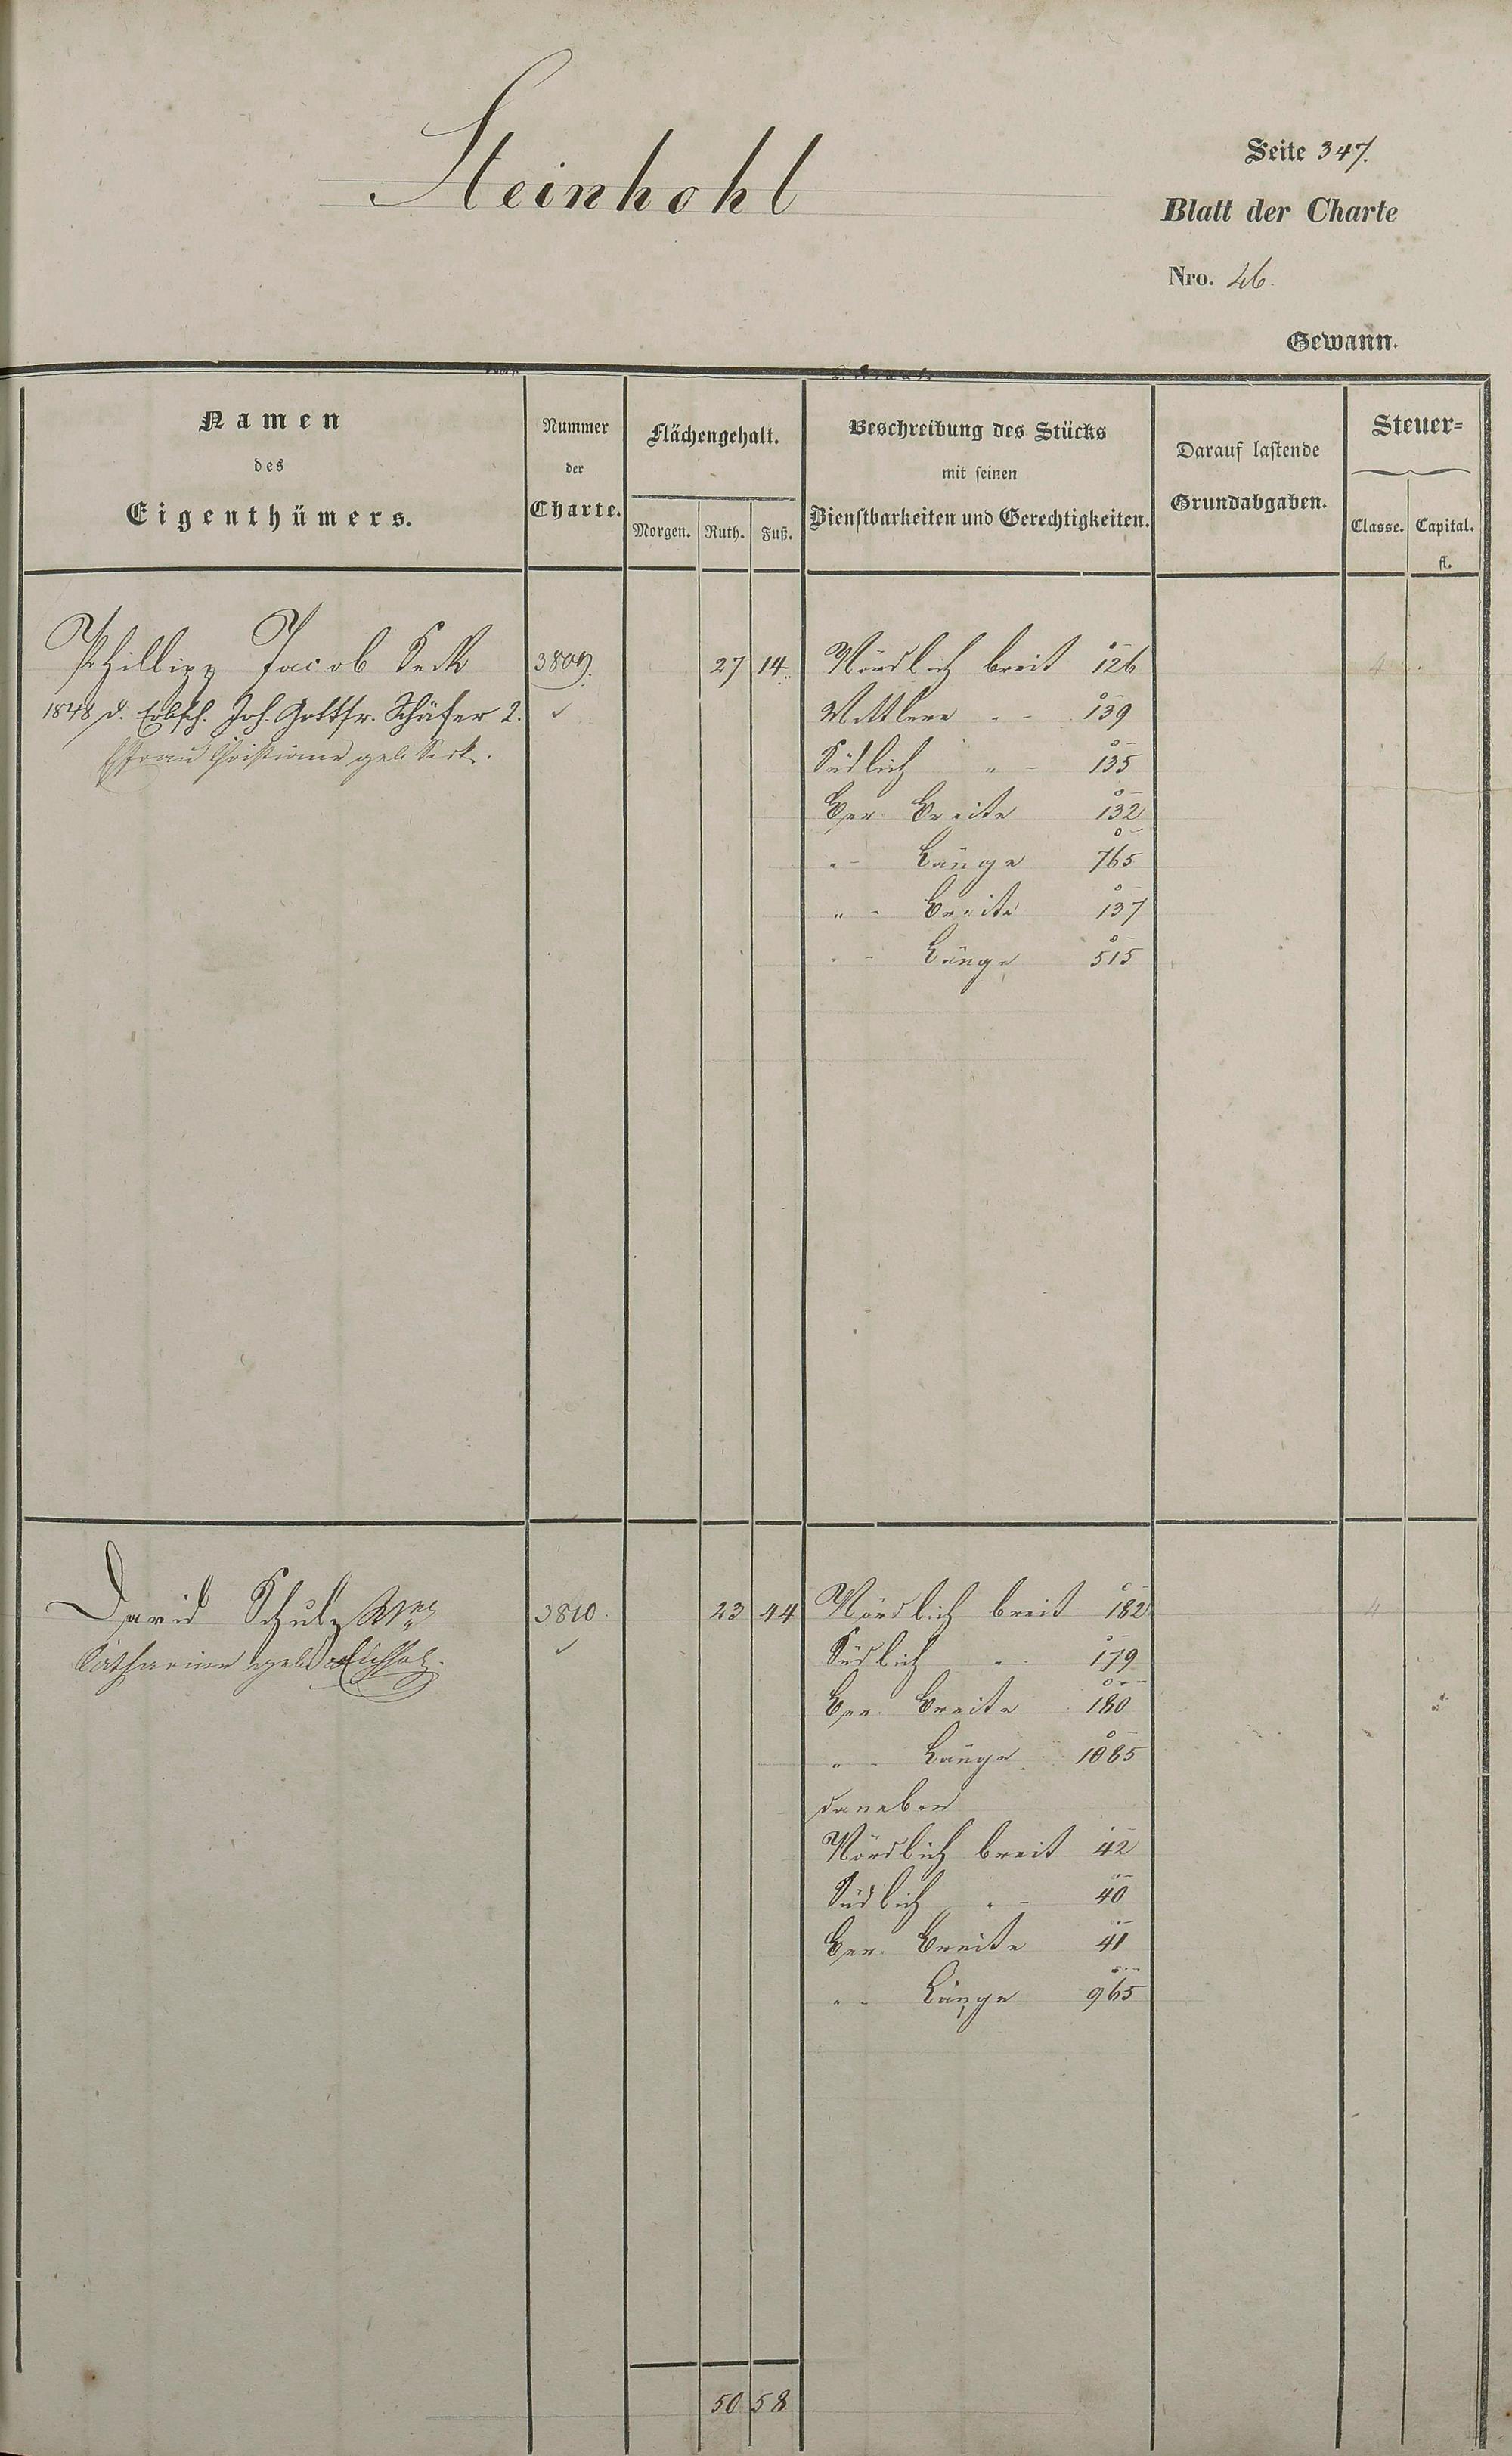 Steinhohl
Seite 347.
Blatt der Charte
Nro. 46.
Gewann.
Namen
des
Eigenthümers.
Nummer
der
Charte.
Flächengehalt.
Morgen. Ruth. Fuß.
Beschreibung des Stücks
mit seinen
Dienstbarkeiten und Gerechtigkeiten.
Darauf lastende
Grundabgaben.
Steuer-
Classe. Capital.
fl.
Phillipp Jacob Seck 3809. 27 14. Nördlich breit 126 4
1848 d. Erbsch. Joh. Gottfr. Schäfer 2. ✓ Mittlere " - 139
Ehfrau Christiane geb. Seck. Südlich " - 135
Ger. Breite 132
" - Länge 765
" - Breite 137
" - Länge 515
David Schulz 3810. 23 44 Nördlich breit 182 4
Catharine geb. ✓ Südlich " - 179
Ger. Breite 180
" - Länge 1085
daneben
Nördlich breit 42
Südlich " - 40
Ger. Breite 41
" - Länge 965
50 58